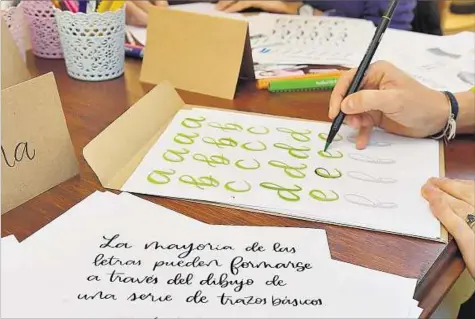 ma
a b c d e
a b c d e
a b c d e
a b c d e
La mayoría de las
letras pueden formarse
a través del dibujo de
una serie de trazos básicos